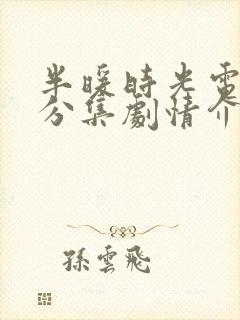 半暖時光電
分集劇情介
孫雲飛